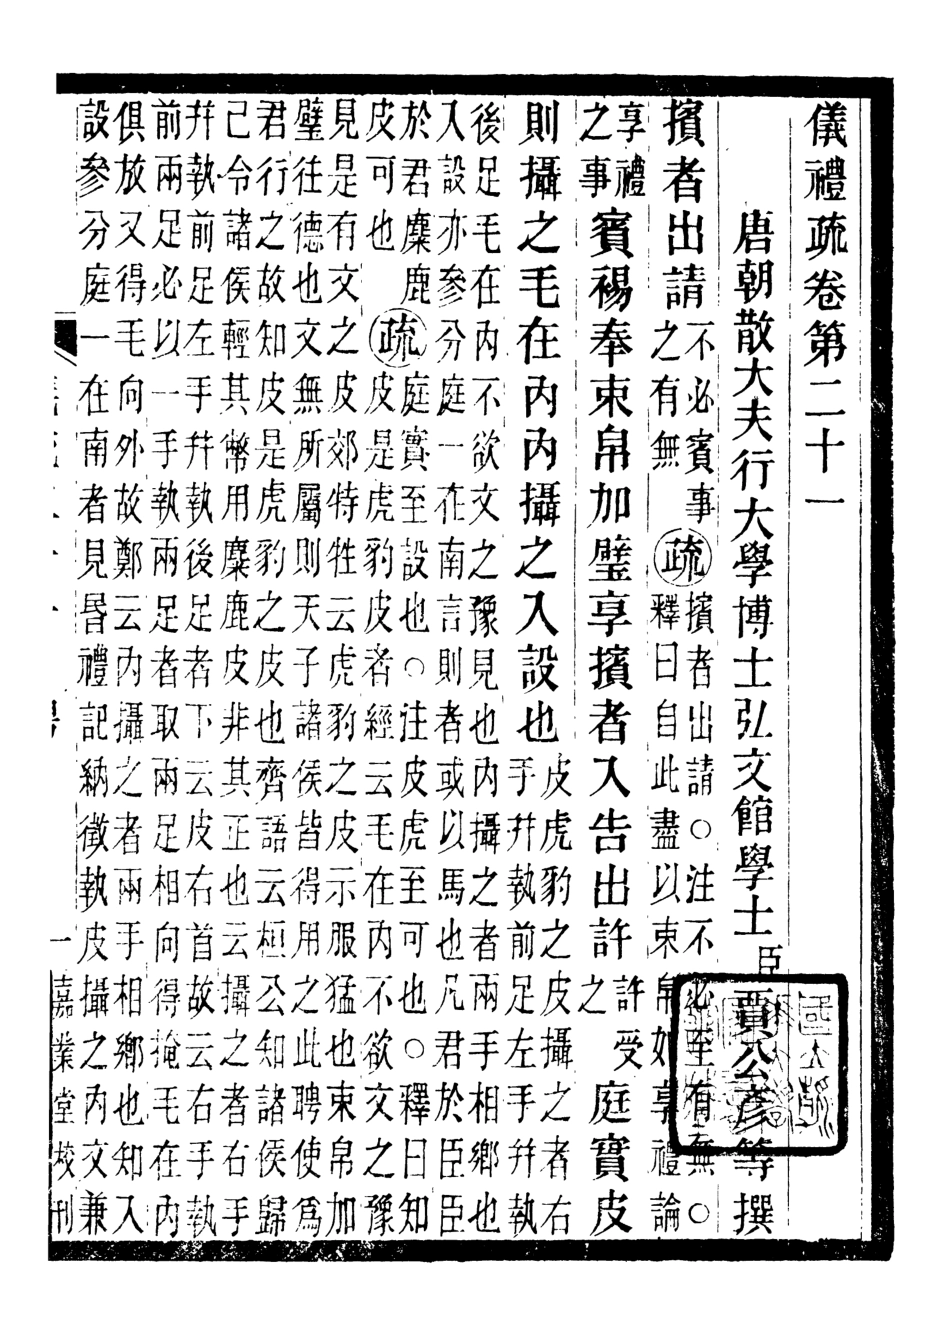 儀禮疏卷第二十一
唐朝散大夫行大學博士弘文館學士臣賈公彥等撰
擯者出請不必賓事之有無疏擯者出請○注不必至有無○釋曰自此盡以束帛如享禮論
享禮之事賓裼奉束帛加璧享擯者入告出許許受之庭實皮
則攝之毛在內內攝之入設也皮虎豹之皮攝之者右手幷執前足左手幷執
後足毛在內不欲文之豫見也內攝之者兩手相鄉也
入設亦參分庭一在南言則者或以馬也凡君於臣臣
於君麋鹿皮可也疏庭實至設也○注皮虎至可也○釋曰知皮是虎豹皮者經云毛在內不欲文之豫
見是有文之皮郊特牲云虎豹之皮示服猛也束帛加
璧往德也文無所屬則天子諸侯皆得用之此聘使爲
君行之故知皮是虎豹之皮也齊語云桓公知諸侯歸
己令諸侯輕其幣用麋鹿皮非其正也云攝之者右手
幷執前足左手幷執後足者下云皮右首故云右手執
前兩足必以一手執兩足者取兩足相向得掩毛在內
俱放又得毛向外故鄭云內攝之者兩手相鄉也知入
設參分庭一在南者見昏禮記納徵執皮攝之內文兼
一
嘉業堂校刊